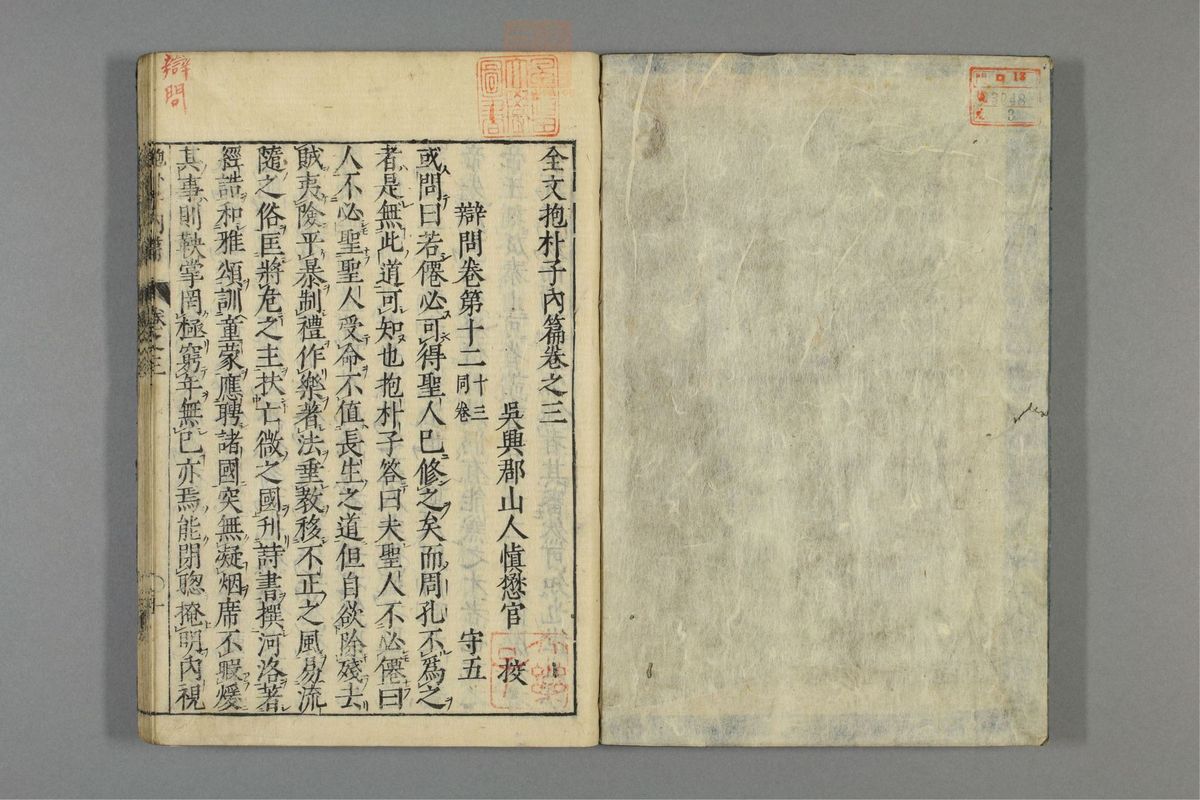 全文抱朴子內篇卷之三
吳興郡山人愼懋官 校
辯問卷第十二 十三同卷 守五
或問曰若僊必可得聖人巳修之矣而周孔不爲之
者是無此道可知也抱朴子答曰夫聖人不必僊曰
人不必聖聖人受命不値長生之道但自欲除殘去
賊夷險平暴制禮作樂著法垂教移不正之風易流
隨之俗匡將危之主扶亡微之國刋詩書撰河洛著
經誥和雅頌訓童蒙應聘諸國突無凝烟席不暇煖
其事則鞅掌罔極窮年無巳亦焉能閉聰掩明內視
辯問